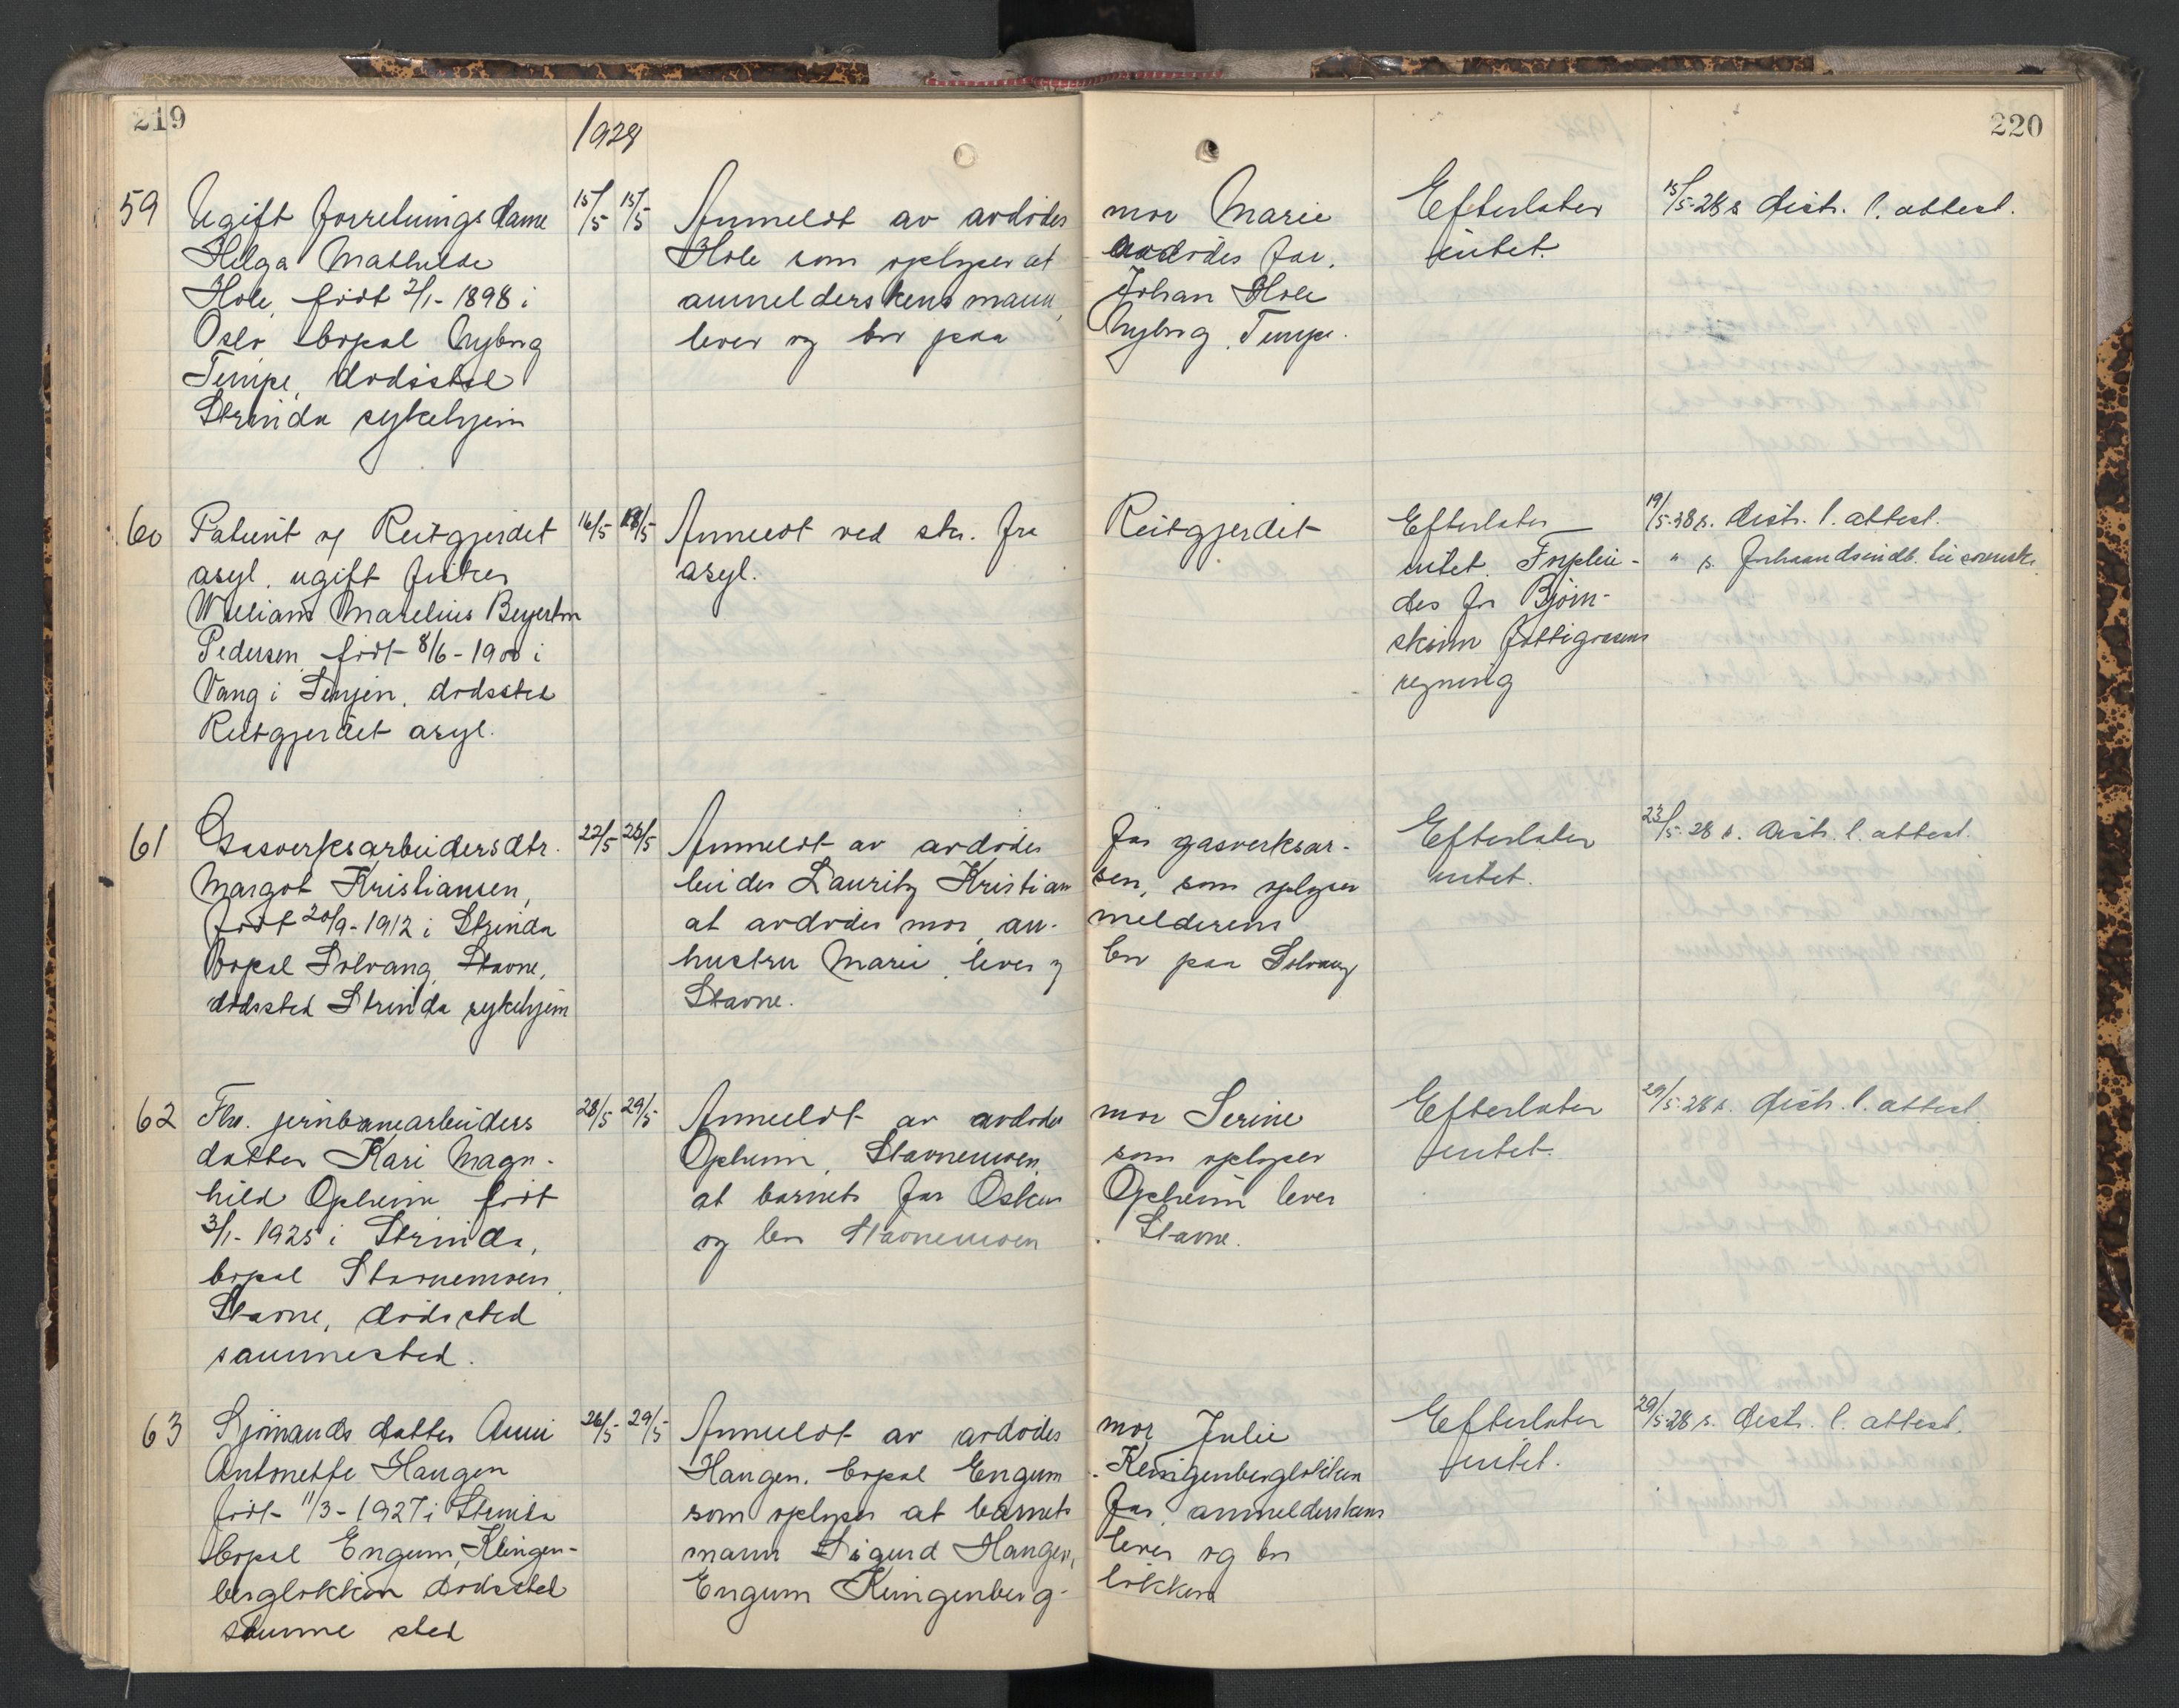 219
220
1928
59
Ugift forretningsdame
Helga Mathilde
Hole, født 2/1-1898 i
Oslo bopæl Nyborg
Tempe, dødssted
Strinda sykehjem
15/5 15/5
Anmeldt av avdødes mor Marie
Hole som oplyser at avdødes far,
anmelderskens mann, Johan Hole
lever og bor paa Nyborg, Tempe.
Efterlater
intet.
15/5-28 s. distr. l. attest.
60
Patient og Reitgjerdet
asyl, ugift fisker
William Marelius Beyerbm
Pedersen, født 8/6-1900 i
Vang i Senjen, dødssted
Reitgjerdet asyl.
16/5 18/5
Anmeldt ved skr. fra Reitgjerdet
asyl.
Efterlater
intet. Forplei-
des for Bjørn-
skinn fattigvesens
regning
19/5-28 s. distr. l. attest.
" s. forhaandsindb.
61
Gasverksarbeidersdtr.
Margot Kristiansen,
født 20/9-1912 i Strinda
Bopæl Solvang, Stavne,
dødssted Strinda sykehjem
22/5 23/5
Anmeldt av avdødes far gasverksar-
beider Lauritz Kristiansen, som oplyser
at avdødes mor, anmelderens
hustru Marie, lever og bor paa Solvang
Stavne.
Efterlater
intet.
23/5-28 s. distr. l. attest.
62
Fhv. jernbanearbeiders
datter Kari Magn-
hild Opheim født
3/1-1925 i Strinda,
bopæl Stavnemoen,
Stavne, dødssted
sammested.
28/5 29/5
Anmeldt av avdødes mor Serine
Opheim, Stavnemoen, som oplyser
at barnets far Oskar Opheim lever
og bor Stavnemoen, Stavne.
Efterlater
intet.
29/5-28 s. distr. l. attest.
63
Sjømands datter Anni
Antonette Haugen
født 11/3-1927 i Strinda
bopæl Engum, Klingen-
bergløkken dødssted
samme sted
26/5 29/5
Anmeldt av avdødes mor Julie
Haugen, bopæl Engum, Klingenbergløkken
som oplyser at barnets far, anmelderskens
mann Sigurd Haugen, lever og bor
Engum Klingenberg- løkken
Efterlater
intet.
29/5-28 s. distr. l. attest.